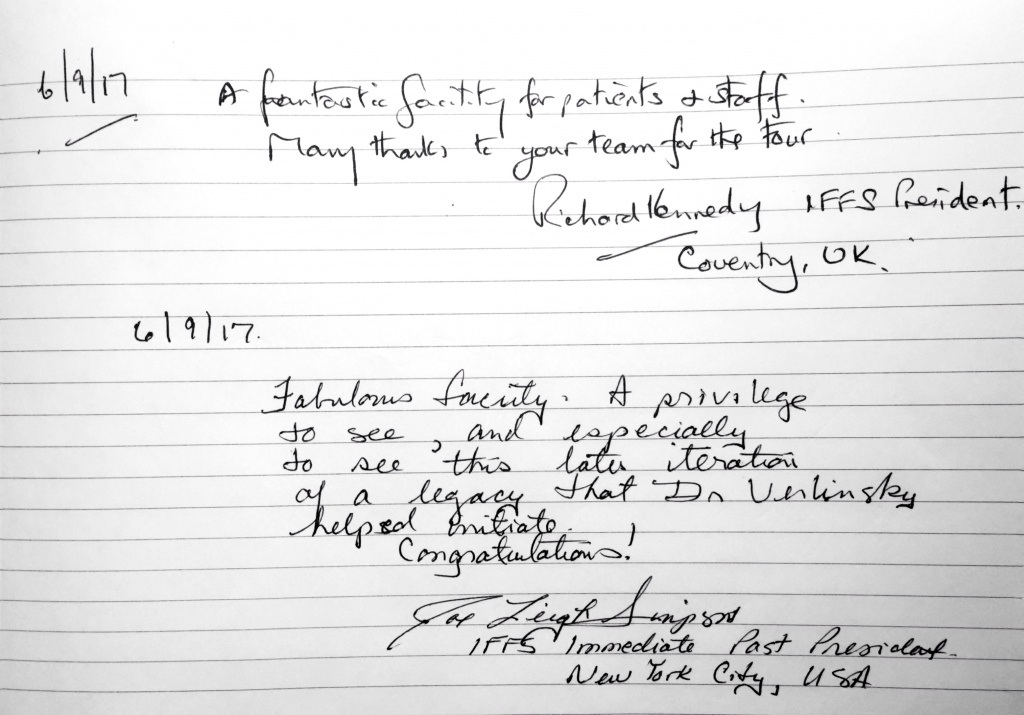 6/9/17
A fantastic facility for patients & staff.
Many thanks to your team for the tour
Richard Kennedy IFFS President.
Coventry, UK.
6/9/17.
Fabulous facility. A privilege
to see, and especially
to see this later iteration
of a legacy that Dr Verlinsky
helped initiate.
Congratulations!
Joe Leigh Simpson
IFFS Immediate Past President.
New York City, USA